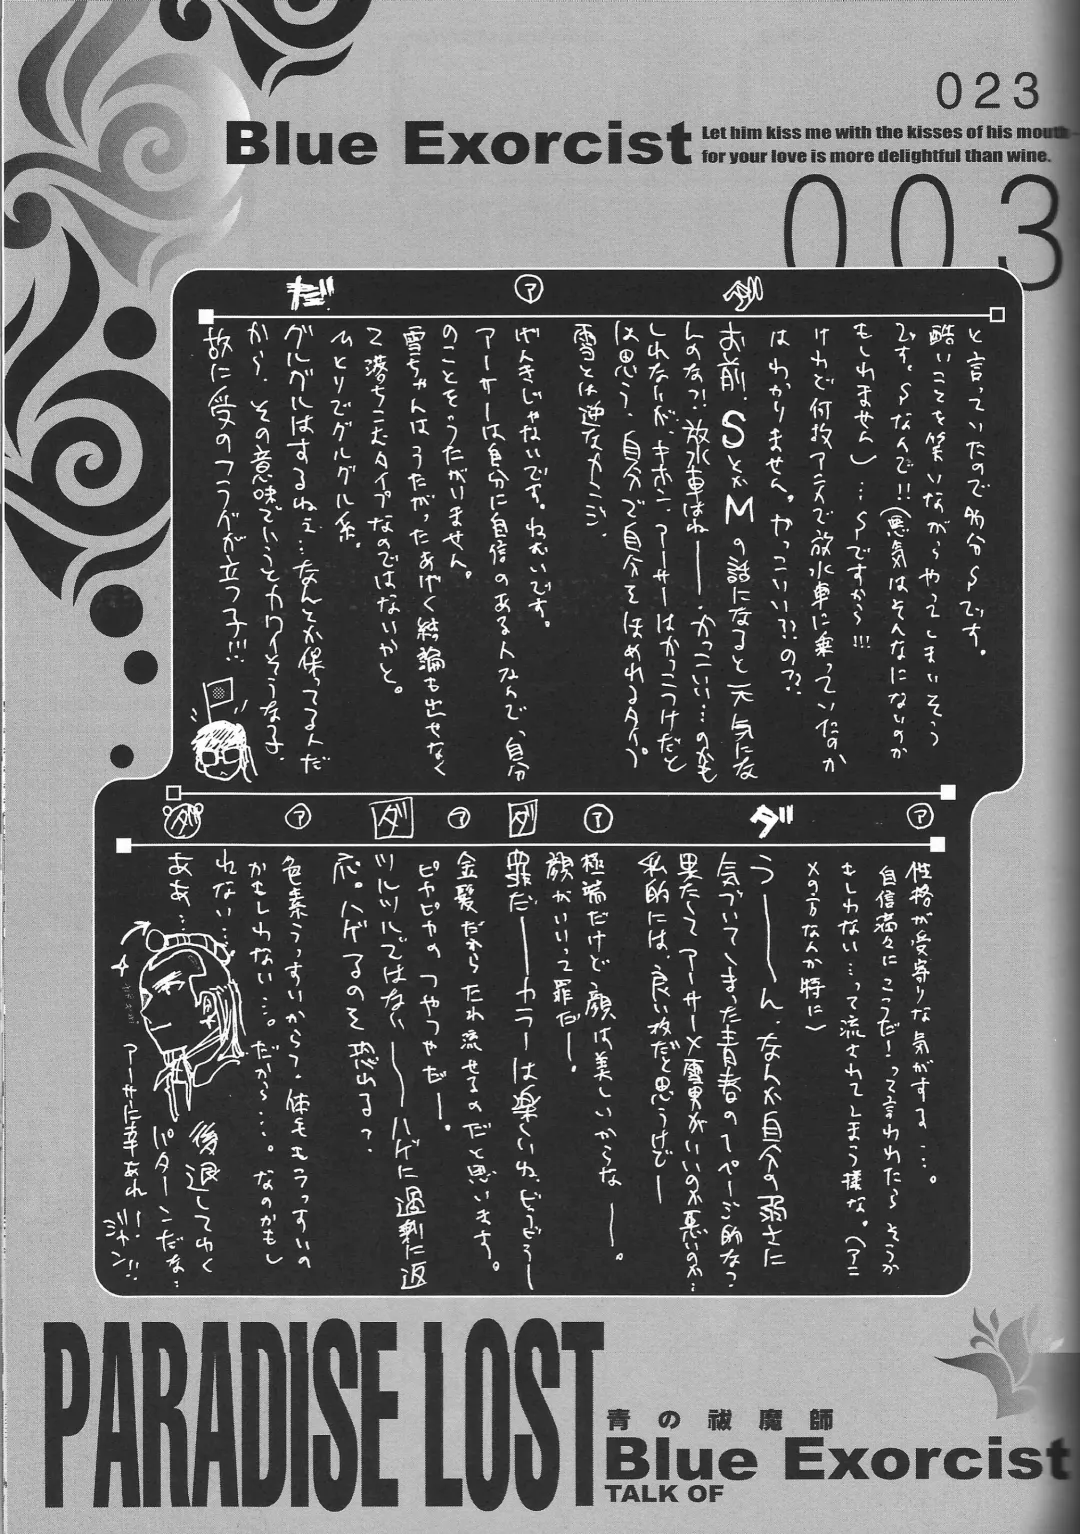 023
Blue Exorcist
Let him kiss me with the kisses of his mouth
for your love is more delightful than wine.
003
と言っていたので多分Sです。
酷いことを笑いながらやってしまいそう
です。Sなんで!!(悪気はそんなにないのか
もしれません)…Sですから!!!
けれど何故アニメで放水車に乗っていたのか
はわかりません。かっこいい??の??
ダ
お前、SとかMの話になると元気にな
んのな?!放水車はねーー、かっこいい…のかも
しれないが、キホン、アーサーはかっこつけだと
は思う、自分で自分をほめれるタイプ。
雪とは逆なカンジ。
ア
げんきじゃないです。ねむいです。
アーサーは自分に自信のある人なんで、自分
のことをうたがいません。
雪ちゃんはうたがったあげく結論も出せなく
て落ちこむタイプなのではないかと。
ひとりでグルグル系。
だ
グルグルはするねぇ…なんとか保ってるんだ
から、その意味でいうとカワイそうな子、
故に受のフラグが立つ子!!!
ア
性格が受寄りな気がする…。
自信満々にこうだ!って言われたらそうか
もしれない…って流されてしまう様な。(アニ
メの方なんか特に)
ダ
うーーん、なんか自分の弱さに
気づいてしまった青春の1ページ的な?
果たしてアーサー×雪男がいいのか悪いのか…
私的には、良い攻だと思うけどー
ア
極端だけど顔は美しいからなー。
顔がいいって罪だー。
ダ
罪だーーカラーは楽しいね、どうどうー
ア
金髪だからたれ流せるのだと思います。
ピカピカのつやつやだー。
ダ
ツルツルではないーーハゲに過剰に返
応。ハゲるのを恐れる?
ア
色素うっすいからって、体毛もうっすいの
かもしれない…。だから…。なのかもし
れない…
ダ
ああ…
後退してゆく
パターンだな…
アーサーに幸あれ!
ジャン!!
PARADISE LOST
青の祓魔師
Blue Exorcist
TALK OF